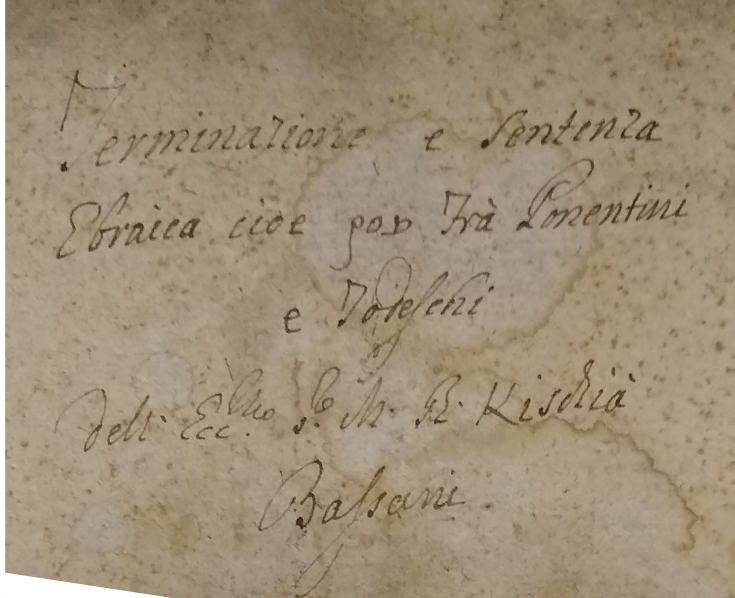 Terminazione e Sentenza
Ebraica cioe פסק Frà Ponentini
e Todeschi
Dell: Ecc:mo Sr. M. R. Kischià
Bassani